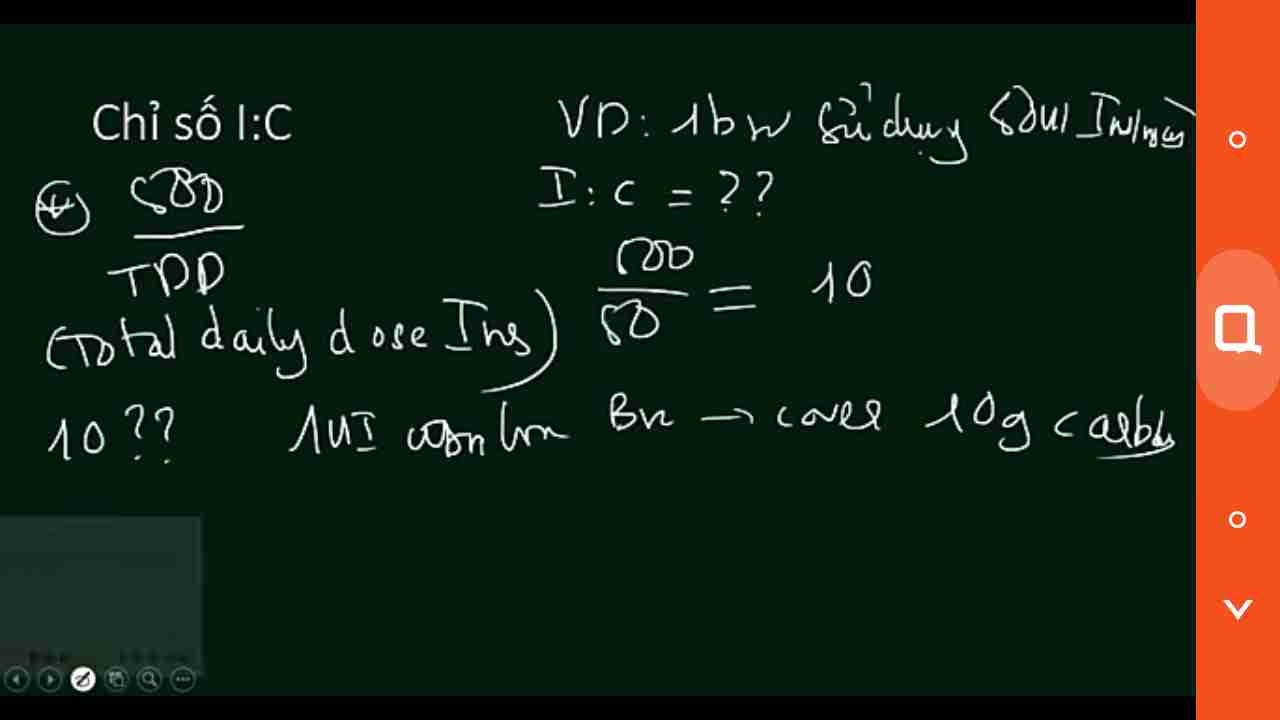 Chỉ số I:C
500
TDD
(Total daily dose Ins)
10 ??
VD: 1 bn sử dụng 50UI Ins/ngày
I:C = ??
500
50
= 10
1UI Bn → cover 10g carbs